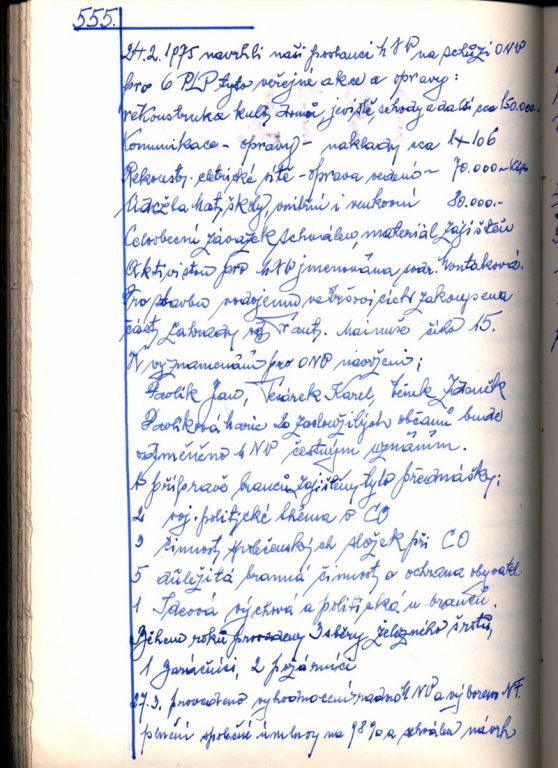 555.
24.2.1975 navrhli naši poslanci MNV na schůzi ONV
pro 6 PLP tyto veřejné akce a opravy:
rekonstrukce kult. domů, jeviště, schody a další cca 150.000.-
Komunikace - opravy - náklady cca
Rekonstr. eletrické sítě - oprava vedení - 70.000.- Kčs
Údržba mat. školy, vnitřní i venkovní 80.000.-
Celoobecní závazek schválen, materiál zajištěn
Aktivistou pro MNV jmenována sodr.
Pro stavbu vodojemu zakoupena
část zahrady od Frant. číslo 15.
K vyznamenání pro ONV navrženi;
Pavlík Jan, Karel, Zdeněk
Pavlíková 20 zasloužilých občanů bude
odměněno MNV čestným uznáním.
O přípravě branců zajištěny tyto přednášky;
2 voj. politické théma o CO
2 činnosti složek při CO
5 důležitá branná činnost a ochrana obyvatel
1 Ideová výchova a politická u branců.
Během roku provedeny 3 sběry železného šrotu,
1 zahrádkáři, 2 požárníci
27.3. provedeno vyhodnocení radou MNV a výborem NF.
plnění společné úmluvy na 98% a schválen návrh